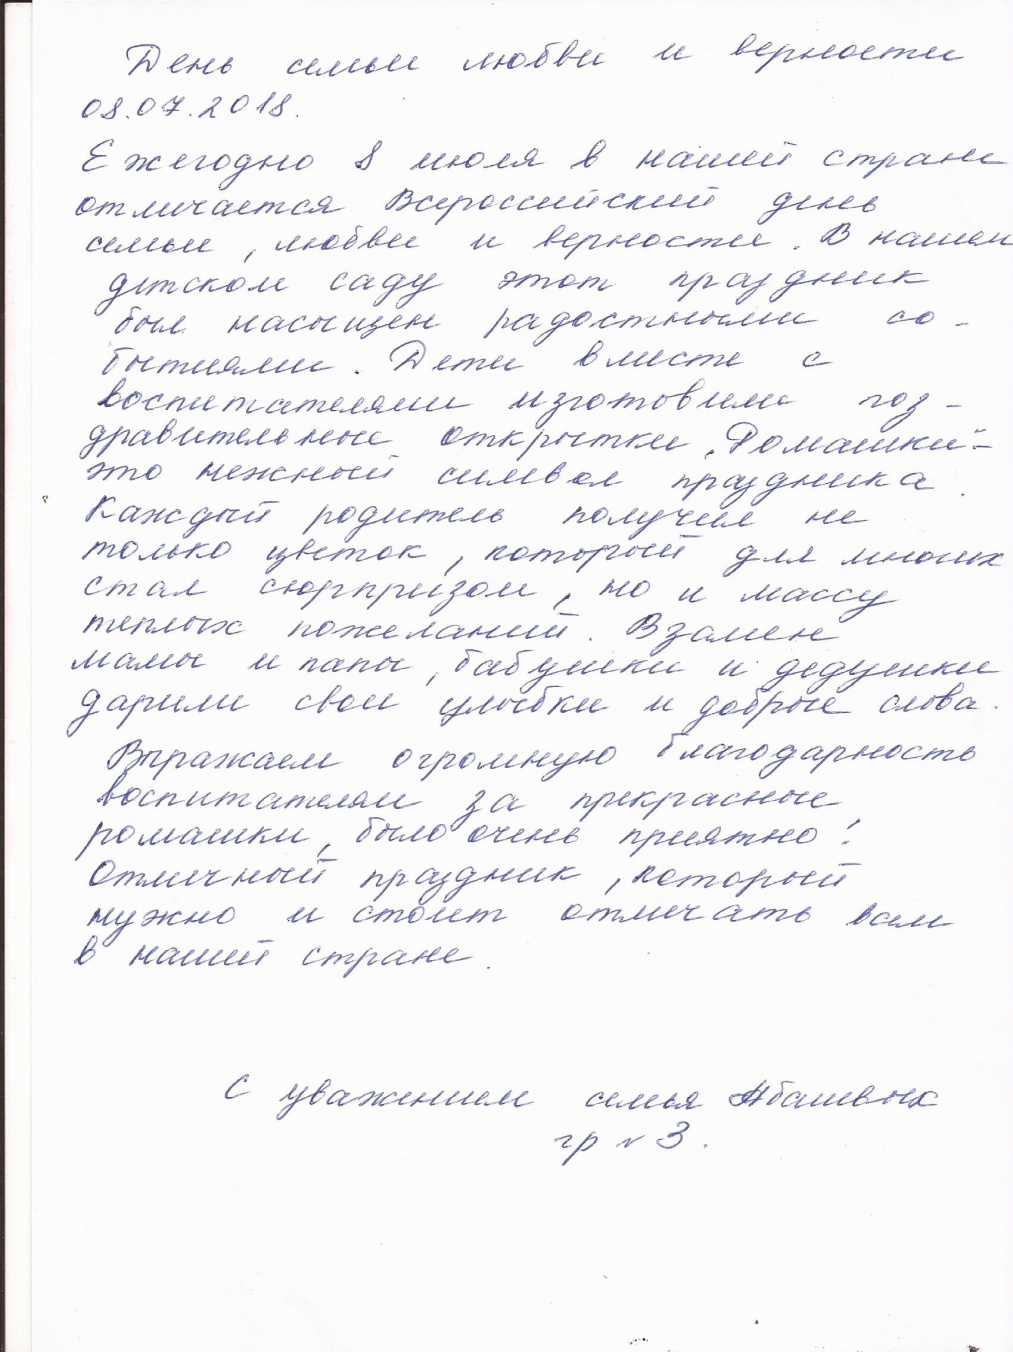 День семьи любви и верности
08.07.2018.
Ежегодно 8 июля в нашей стране
отмечается Всероссийский день
семьи, любви и верности. В нашем
детском саду этот праздник
был насыщен радостными со-
бытиями. Дети вместе с
воспитателями изготовили поз-
дравительные открытки „Ромашки"-
это нежный символ праздника.
Каждый родитель получил не
только цветок, который для многих
стал сюрпризом, но и массу
теплых пожеланий. Взамен
мамы и папы, бабушки и дедушки
дарили свои улыбки и добрые слова.
Выражаем огромную благодарность
воспитателям за прекрасные
ромашки, было очень приятно!
Отличный праздник, который
нужно и стоит отмечать всем
в нашей стране.
С уважением семья
гр № 3.